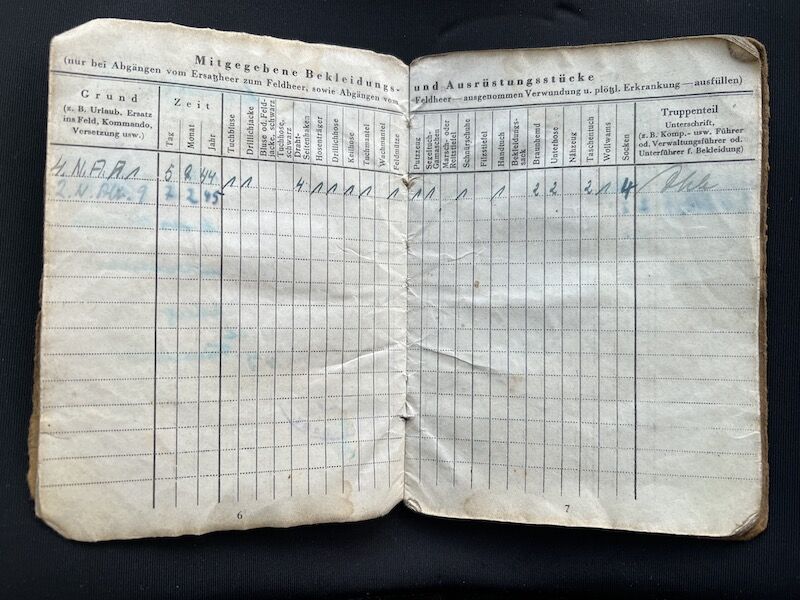 Mitgegebene Bekleidungs- und Ausrüstungsstücke
(nur bei Abgängen vom Ersatzheer zum Feldheer, sowie Abgängen vom Feldheer — ausgenommen Verwundung u. plötzl. Erkrankung — ausfüllen)
Grund
(z. B. Urlaub, Ersatz
ins Feld, Kommando,
Versetzung usw.)
Zeit
Tag
Monat
Jahr
Tuchbluse
Drillichjacke
Bluse od. Feld-
jacke, schwarz
Tuchhose,
schwarz
Draht-
Seitenhaken
Hosenträger
Drillichhose
Keilhose
Tuchmantel
Wachmantel
Feldmütze
Putzzeug
Segeltuch-
Gamaschen
Marsch- oder
Reitstiefel
Schnürschuhe
Filzstiefel
Handtuch
Bekleidungs-
sack
Braunhemd
Unterhose
Nähzeug
Taschentuch
Wollwams
Socken
Truppenteil
Unterschrift,
(z. B. Komp.- usw. Führer
od. Verwaltungsführer od.
Unterführer f. Bekleidung)
4. N.A.A 1 5 8 44 1 1 4 1 1 1 1 1 1 1 1 1 2 2 2 1 4
2. N. 9 7 2 45
6
7